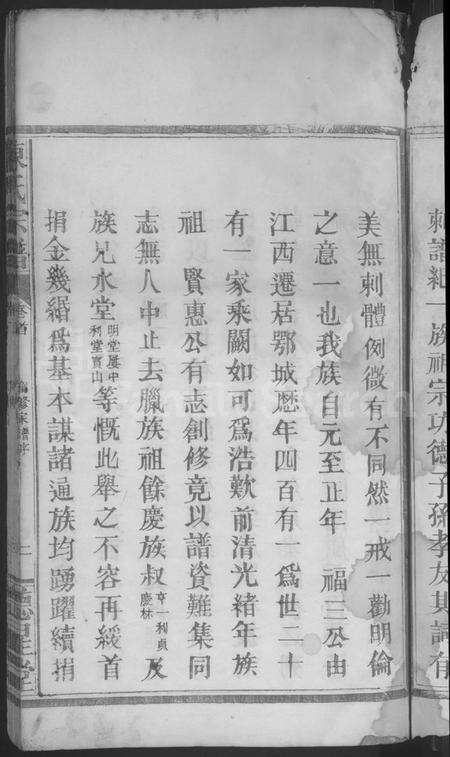 刺譜紀一族祖宗功德子孫孝友其詞有
美無刺體例微有不同然一戒一勸明倫
之意一也我族自元至正年 福三公由
江西遷居鄂城歷年四百有一為世二十
有一家乘闕如可為浩歎前清光緒年族
祖 賢惠公有志創修竟以譜資難集同
志無人中止去臘族祖餘慶族叔亨一利貞慶林及
族兄水堂明堂慶中利堂寶山等慨此舉之不容再緩首
捐金幾緡為基本謀諸通族均踴躍續捐
陳氏宗譜 卷首